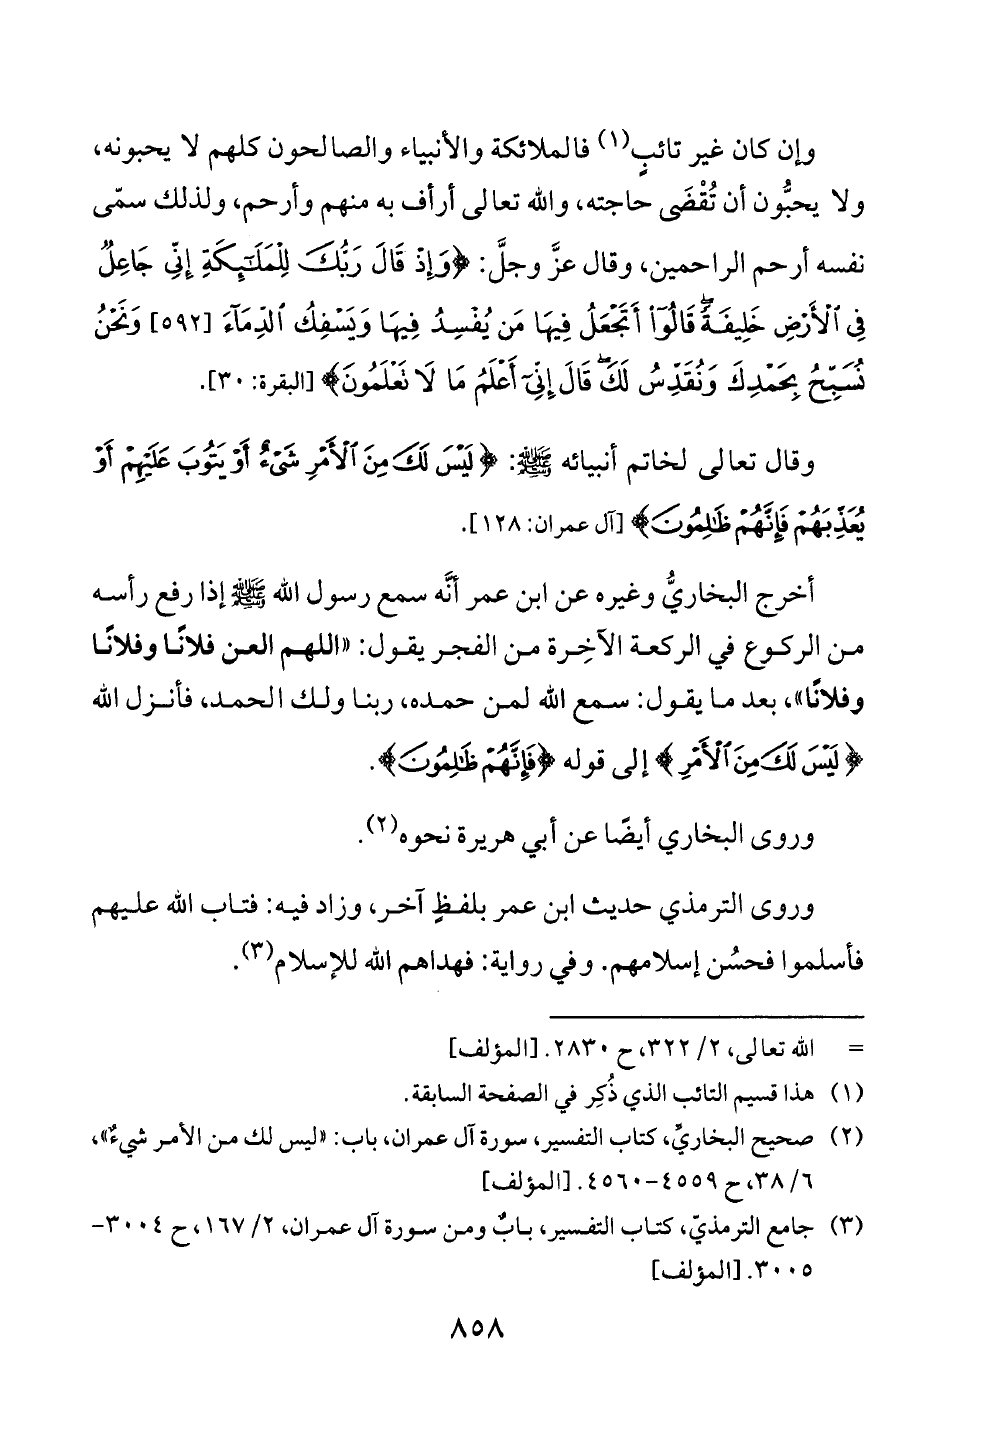 وإن كان غير تائبٍ(١) فالملائكة والأنبياء والصالحون كلهم لا يحبونه،
ولا يحبُّون أن تُقْضَى حاجته، والله تعالى أرأف به منهم وأرحم، ولذلك سمّى
نفسه أرحم الراحمين، وقال عزَّ وجلَّ: ﴿وَإِذْ قَالَ رَبُّكَ لِلْمَلَٰٓئِكَةِ إِنِّي جَاعِلٌ
فِي ٱلْأَرْضِ خَلِيفَةً ۖ قَالُوٓا۟ أَتَجْعَلُ فِيهَا مَن يُفْسِدُ فِيهَا وَيَسْفِكُ ٱلدِّمَآءَ [٥٩٢] وَنَحْنُ
نُسَبِّحُ بِحَمْدِكَ وَنُقَدِّسُ لَكَ ۖ قَالَ إِنِّيٓ أَعْلَمُ مَا لَا تَعْلَمُونَ﴾ [البقرة: ٣٠].
وقال تعالى لخاتم أنبيائه ﷺ: ﴿لَيْسَ لَكَ مِنَ ٱلْأَمْرِ شَىْءٌ أَوْ يَتُوبَ عَلَيْهِمْ أَوْ
يُعَذِّبَهُمْ فَإِنَّهُمْ ظَٰلِمُونَ﴾ [آل عمران: ١٢٨].
أخرج البخاريُّ وغيره عن ابن عمر أنَّه سمع رسول الله ﷺ إذا رفع رأسه
من الركوع في الركعة الآخِرة من الفجر يقول: «اللهم العن فلانًا وفلانًا
وفلانًا»، بعد ما يقول: سمع الله لمن حمده، ربنا ولك الحمد، فأنزل الله
﴿لَيْسَ لَكَ مِنَ ٱلْأَمْرِ﴾ إلى قوله ﴿فَإِنَّهُمْ ظَٰلِمُونَ﴾.
وروى البخاري أيضًا عن أبي هريرة نحوه(٢).
وروى الترمذي حديث ابن عمر بلفظٍ آخر، وزاد فيه: فتاب الله عليهم
فأسلموا فحسُن إسلامهم. وفي رواية: فهداهم الله للإسلام(٣).
= الله تعالى، ٢/ ٣٢٢، ح ٢٨٣٠. [المؤلف]
(١) هذا قسيم التائب الذي ذُكِر في الصفحة السابقة.
(٢) صحيح البخاريِّ، كتاب التفسير، سورة آل عمران، باب: «ليس لك من الأمر شيءٌ»،
٦/ ٣٨، ح ٤٥٥٩-٤٥٦٠. [المؤلف]
(٣) جامع الترمذيّ، كتاب التفسير، بابٌ ومن سورة آل عمران، ٢/ ١٦٧، ح ٣٠٠٤-
٣٠٠٥. [المؤلف]
٨٥٨